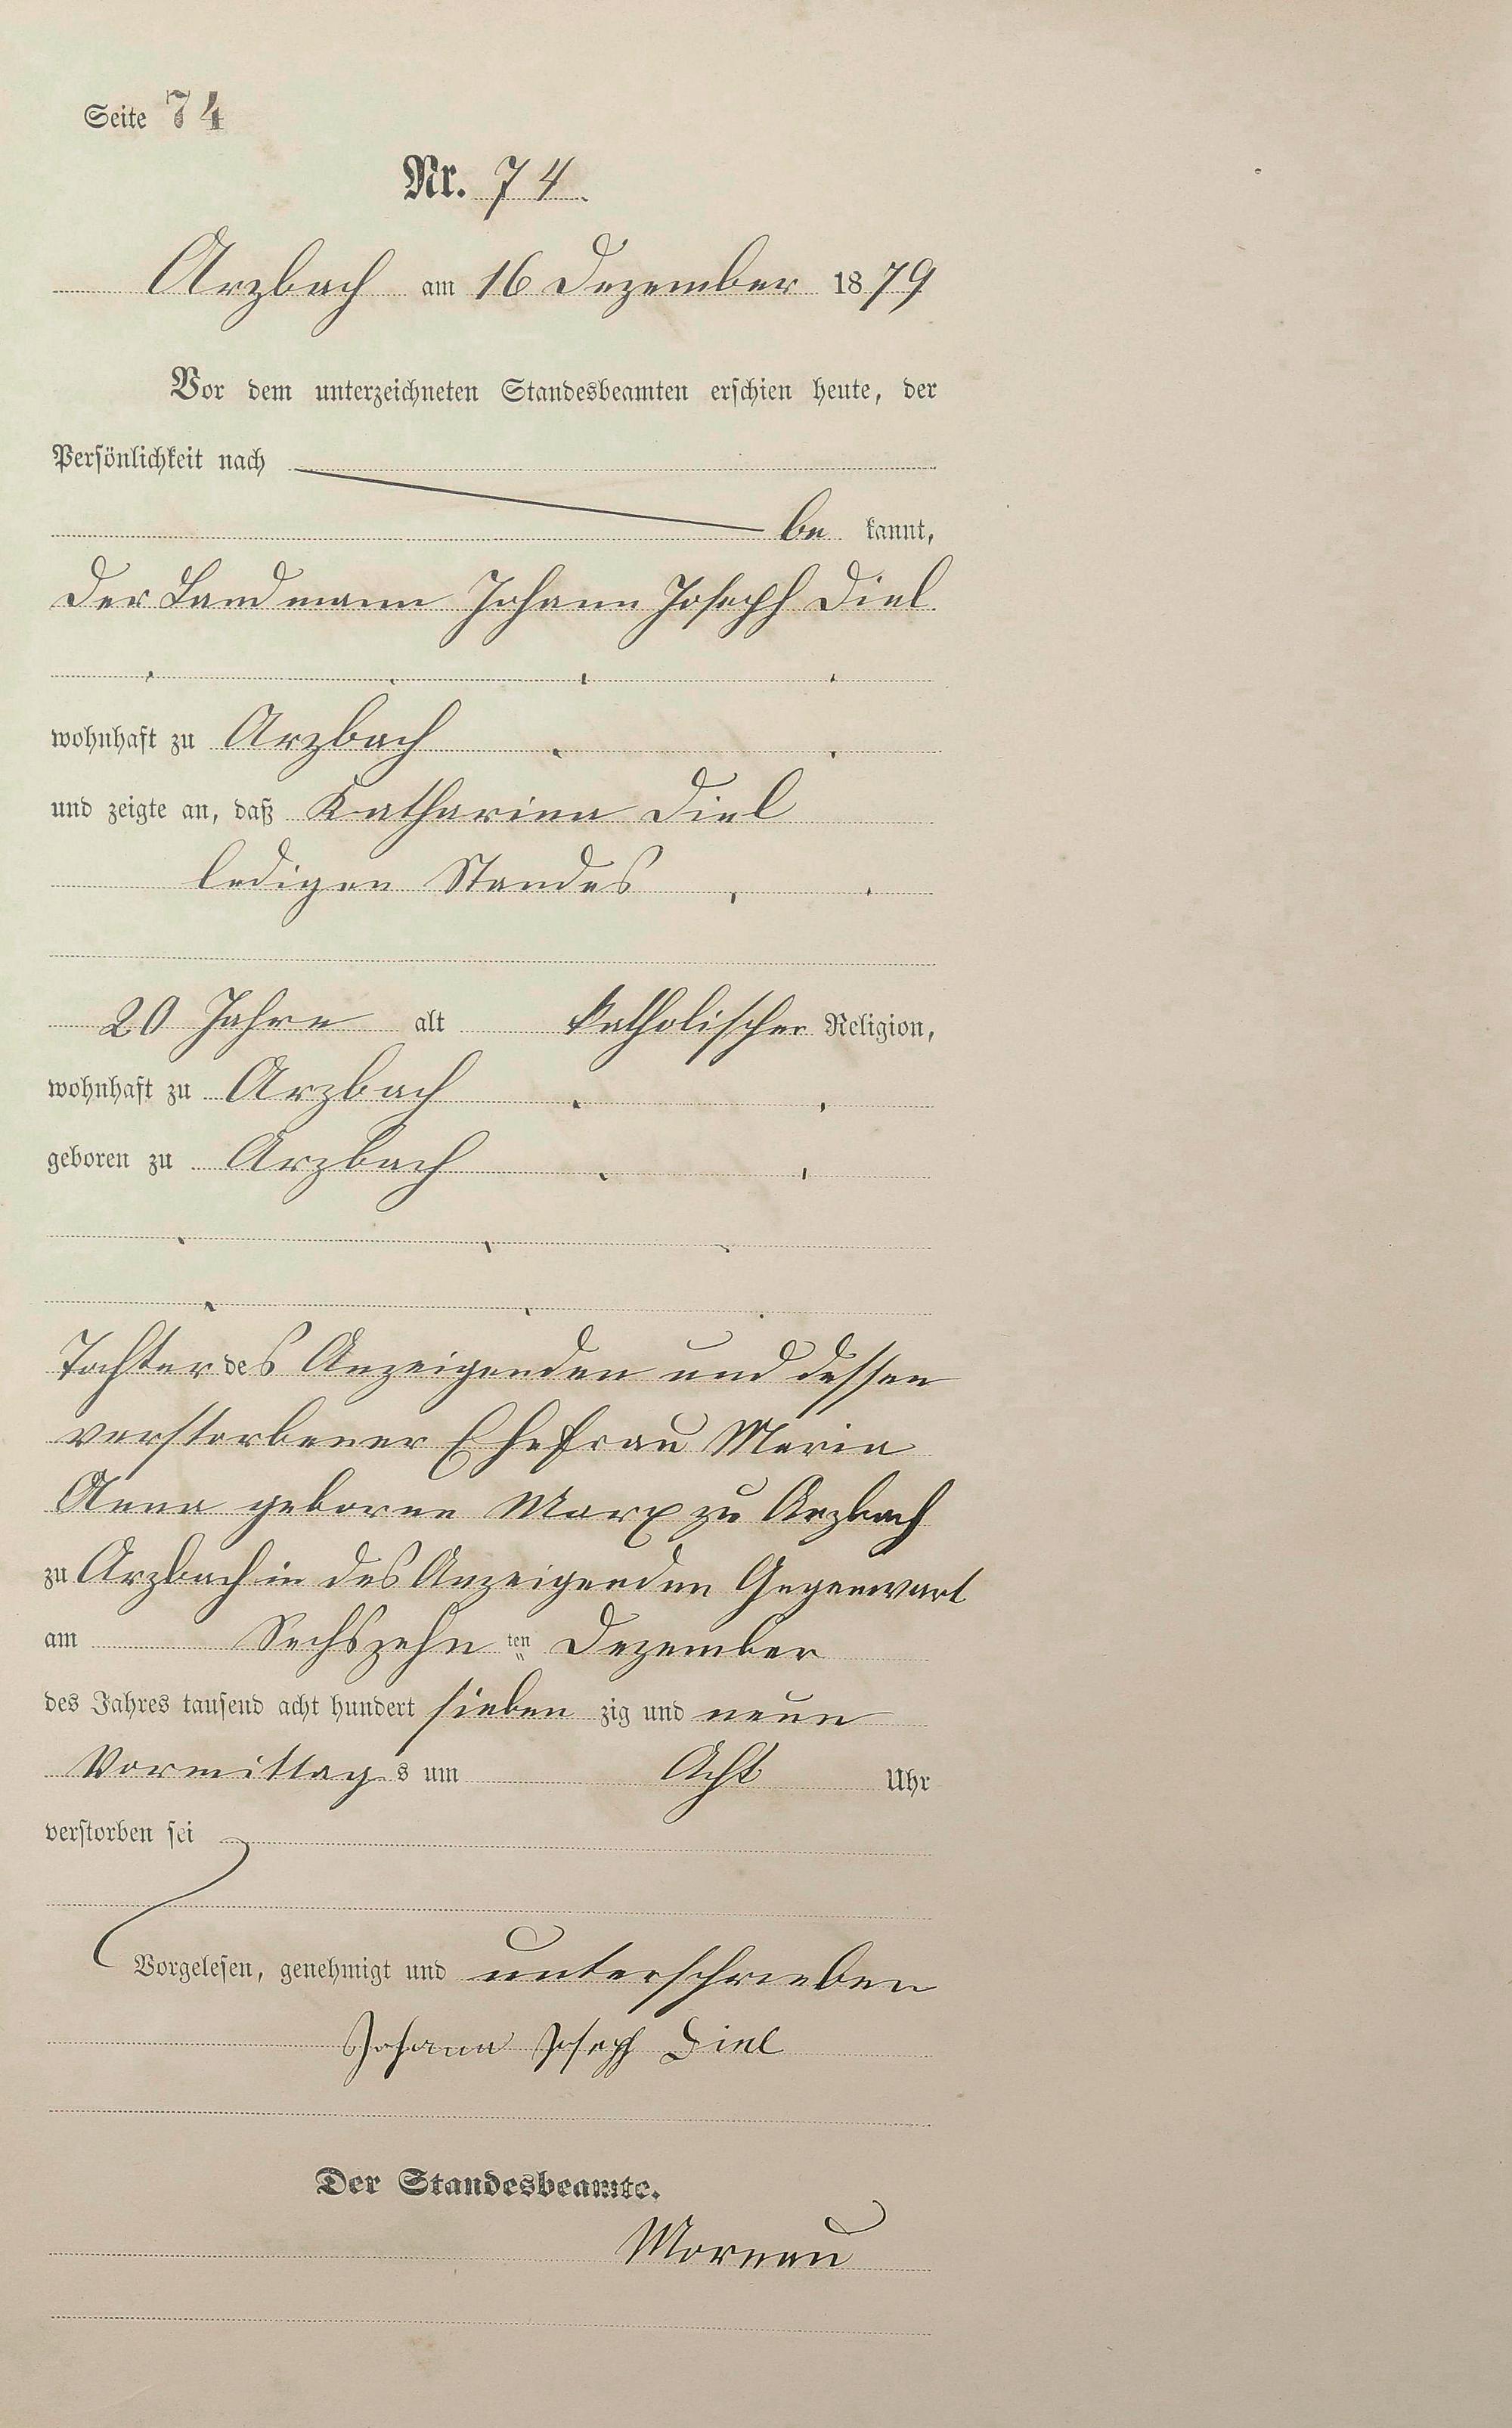 Seite 74
Nr. 74.
Arzbach am 16 Dezember 1879
Vor dem unterzeichneten Standesbeamten erschien heute, der
Persönlichkeit nach
be kannt,
der Landmann Johann Joseph Diel
wohnhaft zu Arzbach
und zeigte an, daß Katharina Diel
ledigen Standes
20 Jahre alt katholischer Religion,
wohnhaft zu Arzbach
geboren zu Arzbach
Tochter des Anzeigenden und dessen
verstorbener Ehefrau Maria
Anna geborne Marx zu Arzbach
zu Arzbach in des Anzeigenden Gegenwart
am Sechszehn ten Dezember
des Jahres tausend acht hundert sieben zig und neun
Vormittag s um Acht Uhr
verstorben sei
Vorgelesen, genehmigt und unterschrieben
Johann Joseph Diel
Der Standesbeamte.
Moreau